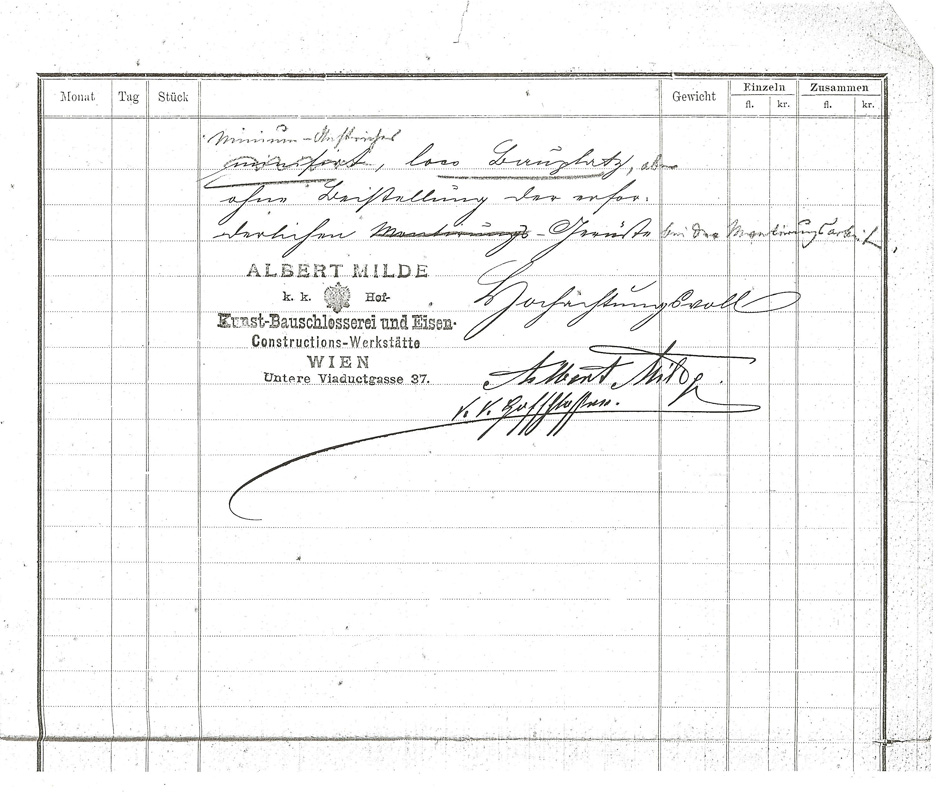 Monat Tag Stück Gewicht Einzeln Zusammen
fl. kr. fl. kr.
Minium-Anstriches
minisirt, loco Bauplatz, aber
ohne Beistellung der erfor-
derlichen Montirungs-Gerüste bei der Montirungsarbeit,
ALBERT MILDE
k. k. Hof-
Kunst-Bauschlosserei und Eisen-
Constructions-Werkstätte
WIEN
Untere Viaductgasse 37.
Hochachtungsvoll
Albert Milde
k. k. Hofschlosser.